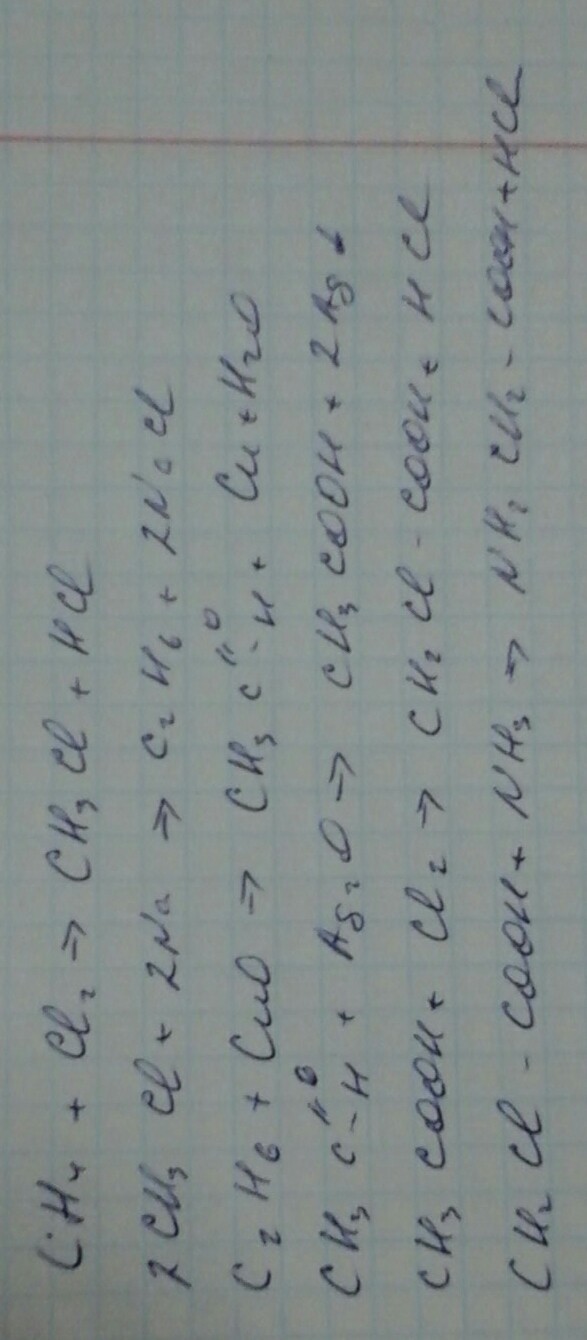 CH₄ + Cl₂ ⇒ CH₃Cl + HCl
2CH₃Cl + 2Na ⇒ C₂H₆ + 2NaCl
C₂H₆ + CuO ⇒ CH₃C(=O)-H + Cu + H₂O
CH₃C(=O)-H + Ag₂O ⇒ CH₃COOH + 2Ag↓
CH₃COOH + Cl₂ ⇒ CH₂Cl-COOH + HCl
CH₂Cl-COOH + NH₃ ⇒ NH₂CH₂-COOH + HCl